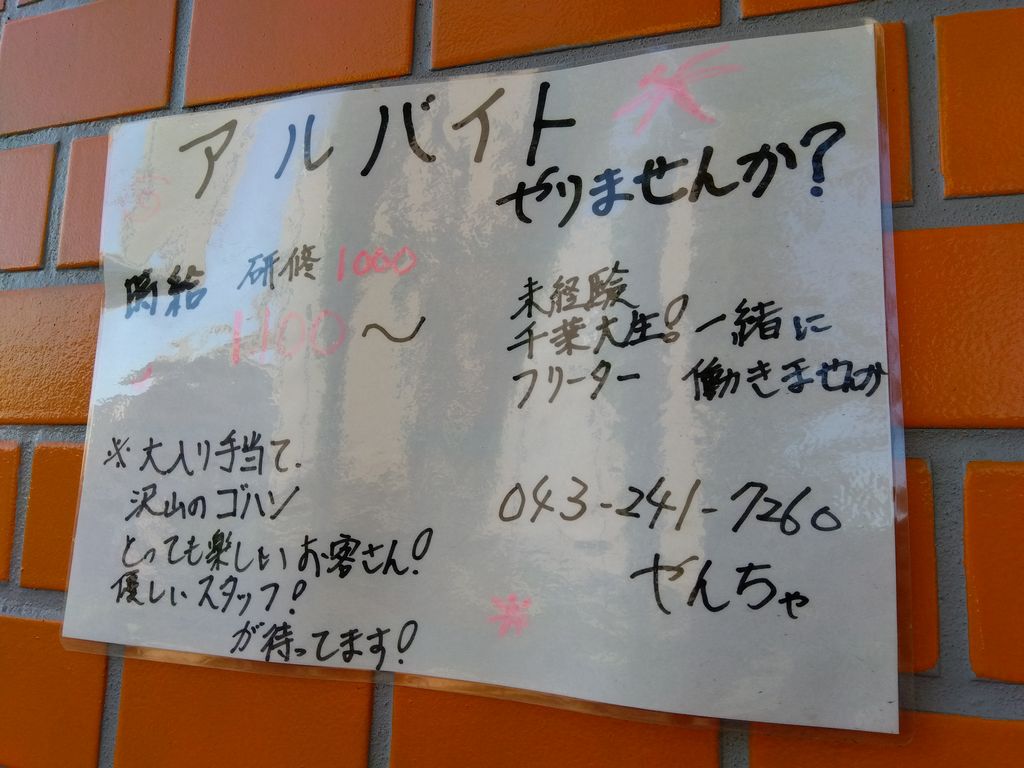 アルバイト
やりませんか?
時給 研修 1000
1100〜
未経験
千葉大生! 一緒に
フリーター 働きませんか
※大入り手当て、
沢山のゴハン
とっても楽しいお客さん!
優しいスタッフ!
が待ってます!
043-241-7260
やんちゃ